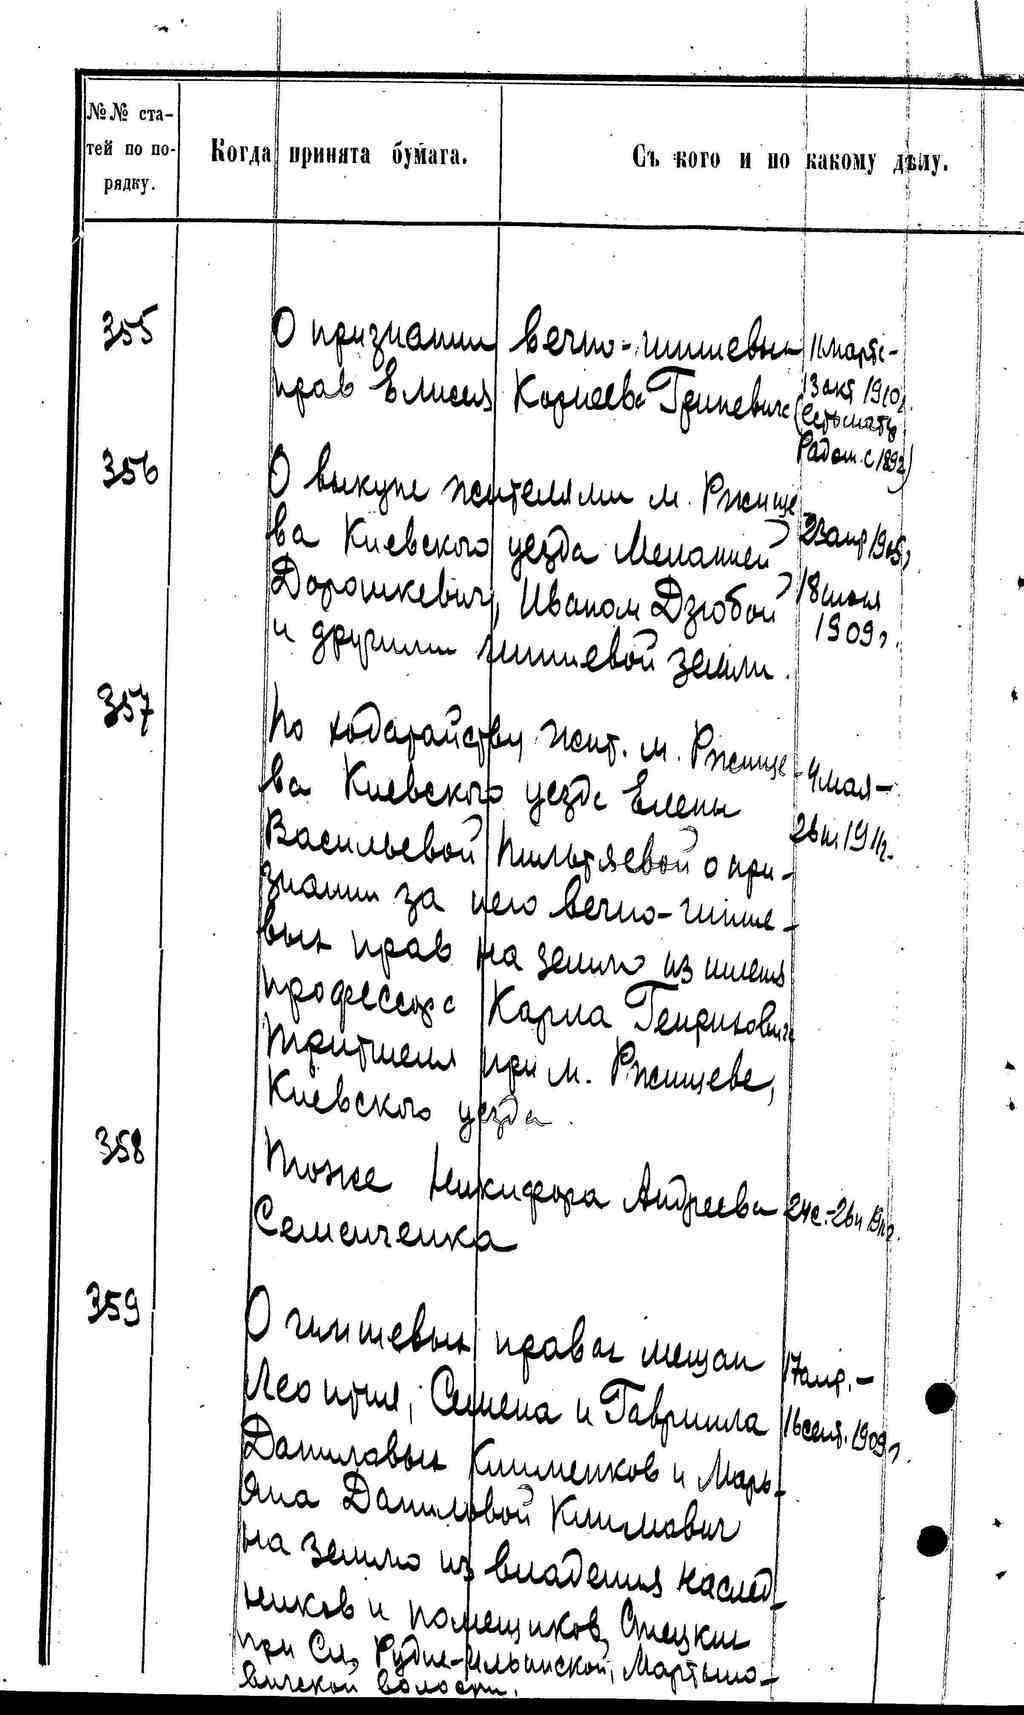 №№ ста-
тей по по-
рядку.
Когда принята бумага.
Съ кого и по какому дѣлу.
355
О признании вечно-чиншевых
прав Елисея Корнеева Гриневича
11 марта -
13 окт 1910 г.
(есть матер.
с 1892)
356
О выкупе жителями м. Ржище
ва Киевского уезда Меланией
Дорошкевич, Иваном Дзюбой
и другими чиншевой земли.
23 апр 1905,
18 июня
1909 г.
357
По ходатайству жит. м. Ржище-
ва Киевского уезда Елены
Васильевой о при-
знании за нею вечно-чинше-
вых прав на землю из имения
профессора Карла Генриховича
Тритшеля при м. Ржищеве,
Киевского уезда.
4 мая -
1911 г.
358
Тоже Никифора Андреева
Семенченка
359
О чиншевых правах мещан
Леонтия, Семена и Гавриила
Даниловых Клименков и Марь-
яна Даниловой Климович
на землю из владения наслед-
ников и помещиков Стецких
при Сл. Рудне-Ильинской, Мартыно-
вичской волости.
17 апр. -
16 сент. 1909 г.